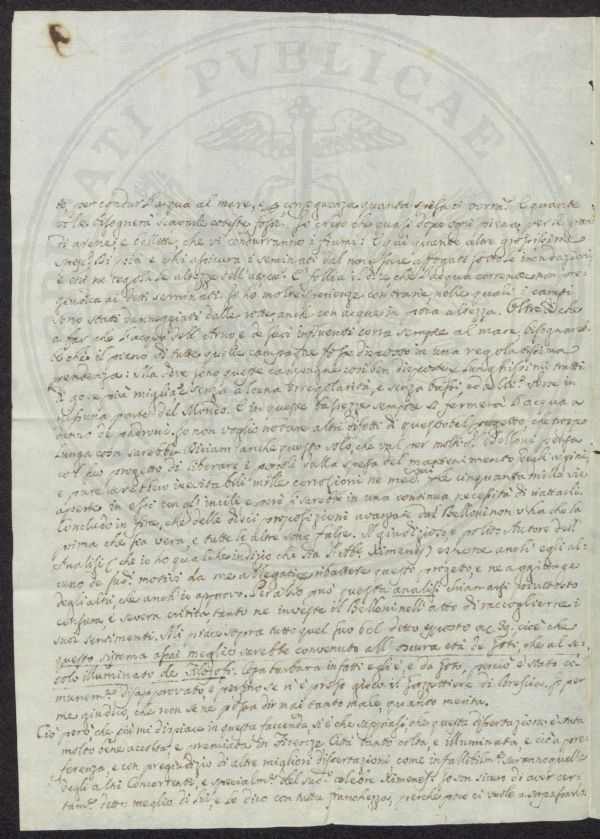 te per condur l'acqua al mare, e p conseguenza quanta spesa ci vorrà? E quante
volte bisognerà scavare coteste fosse? Io credo che quasi dopo ogni piena, per le gran
di arene, e bellette, che vi condurranno i fiumi: E qui quante altre grossissime
spese! Di più e chi assicura i seminati dal non essere affogati sotto le inondazioni
è follia il dire, che l'acqua corrente non pre=
giudica ai detti seminati. Io ho molte sperienze contrarie, nelle quali i campi
sono stati danneggiati dalle rotte anche con acque in poca altezza. Oltre di che
a far che l'acqua dell'Arno, e de suoi influenti corra sempre al mare bisognareb=
be che il piano di tutte quelle campagne fosse disposto in una regolatissima
pendenza: Ma dove sono queste campagne così ben disposte e lunghissimi tratti
di 90. e più miglia senza alcuna irregolarità, e senza bassi, ed alti? forse in
nissuna parte del Mondo. E in queste bassezze sempre si fermerà l'acqua a
danno de' padroni. Io non voglio notare altri difetti di questo bel progetto, che troppo
lunga cosa sarebbe. Diciam anche questo solo, che val per molti. Il Belloni pensa
col suo progetto di liberare i popoli dalla spesa del mantenimento degli argini,
e pure sarebbero inevitabili mille corrosioni ne med. per cinquantamila vie
aperte in essi coi di lui incili e però si sarebbe in una continua necessità di riattarli.
Concludo in fine, che delle dieci proposizioni avanzate dal Belloni non v'ha che la
prima che sia vera, e tutte le altre sono false. Il giudizioso, e polito Autore dell'
Analisi (che io ho qualche indizio che sia l'Abb. Ximenes) espone anch'egli al=
cuno de' sud. motivi da me allegati e ribattere questo progetto, e ne aggiunge
degli altri, che anch'io approvo. Per altro può questa analisi chiamarsi piuttosto
censura, e severa critica, tanto ne investe il Belloni nell'atto di raccoglierne i
suoi sentimenti. Mi piace sopra tutto quel suo bel detto esposto ac. 30, cioè che
questo sistema assai meglio sarebbe convenuto all'oscura età de Goti, che al se=
colo illuminato de Filosofi. Cosa barbara infatti egli è, e da Goti, perciò è stato co=
munem. disapprovato, e persino se n'è preso gioco il Gazzettiere di Brescia. Io per
me giudico, che non se ne possa dir mai tanto male quanto merita.
Ciò però che più mi dispiace in questa faccenda si è che sappiasi che questa dissertazione è stata
molto bene accolta, e premiata in Firenze Città tanto colta, e illuminata, e ciò a pre=
ferenza, e con pregiudizio di altre migliori dissertazioni come infallibilm. saranno quelle
degli altri Concorrenti, e specialm. del sud. celebre Ximenes. Io son sicuro di aver cer=
tam. detto meglio di lui, e lo dico con tutta franchezza, perche poco ci vuole a sorpassarlo.
PVBLICAE